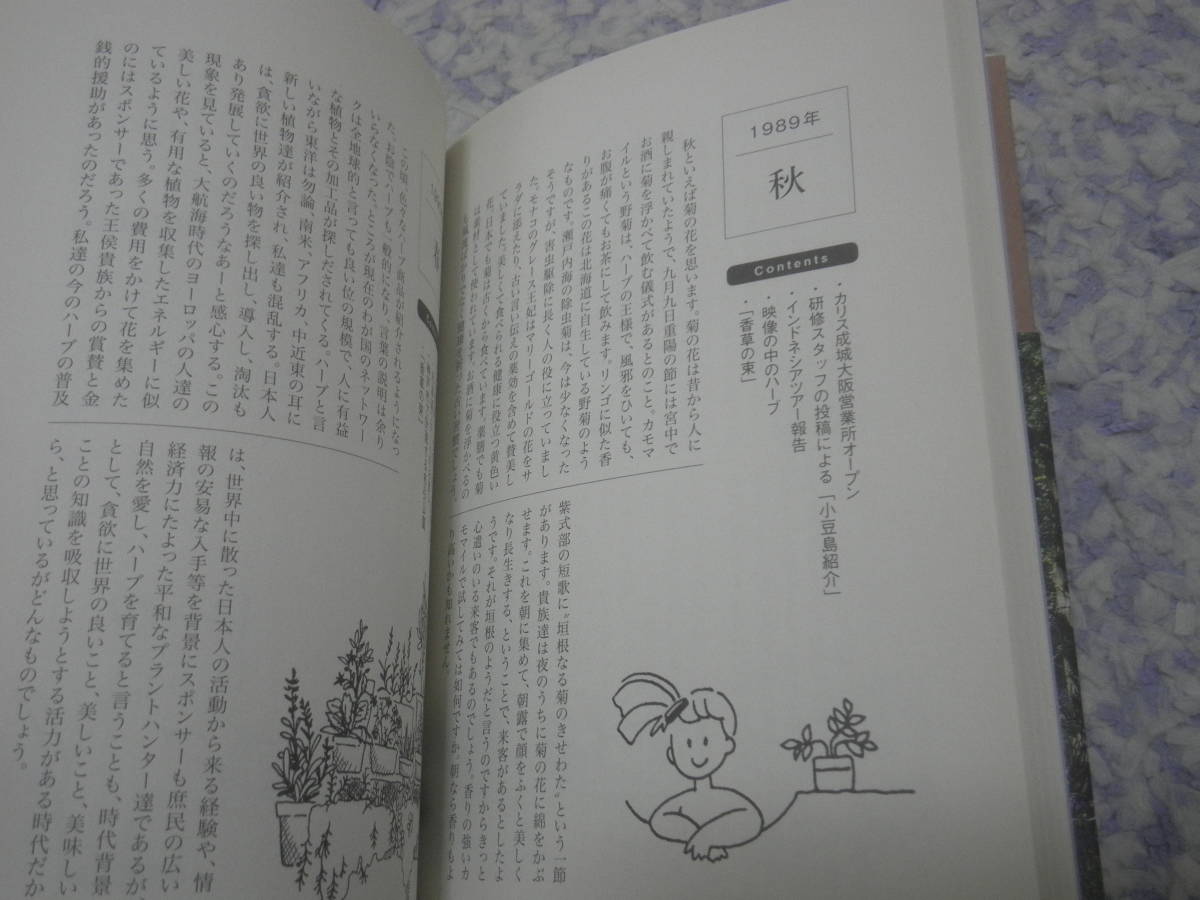 1989年
秋
Contents
・カリス成城大阪営業所オープン
・研修スタッフの投稿による「小豆島紹介」
・インドネシアツアー報告
・映像の中のハーブ
・「香草の束」
秋といえば菊の花を思います。菊の花は昔から人に
親しまれていたようで、九月九日重陽の節には宮中で
お酒に菊を浮かべて飲む儀式があるとのこと。カモマ
イルという野菊は、ハーブの王様で、風邪をひいても、
お腹が痛くてもお茶にして飲みます。リンゴに似た香
りがあるこの花は北海道に自生している野菊のよう
なものです。瀬戸内海の除虫菊は、今は少なくなった
そうですが、害虫駆除に長く人の役に立っていまし
た。モナコのグレース王妃はマリーゴールドの花をサ
ラダに添えたり、古い言い伝えの薬効を含めて賛美し
ていました。美しくて食べられる健康に役立つ黄色い
花、日本でも菊は古くから食べています。薬膳でも菊
は薬材として使われています。お酒に菊を浮かべるの
紫式部の短歌に“垣根なる菊のきせわた”という一節
があります。貴族達は夜のうちに菊の花に綿をかぶ
せます。これを朝に集めて、朝露で顔をふくと美しく
なり長生きする、ということで、来客があるとしたよ
うです。それが垣根のようだと言うのですからきっと
心遣いのいる来客でもあるのでしょう。香りの強いカ
モマイルで試してみては如何ですか。朝なら香りもよ
り高いかも知れません。
この頃、色々なハーブ商品が紹介されるようになっ
た。お陰でハーブも一般的になり、言葉の説明は余り
いらなくなった。ところが現在のわが国のネットワー
クは全地球的と言っても良い位の規模で、人に有益
な植物とその加工品が探しだされてくる。ハーブと言
いながら東洋は勿論、南米、アフリカ、中近東の耳に
新しい植物達が紹介され、私達も混乱する。日本人
は、貪欲に世界の良い物を探し出し、導入し、淘汰も
あり発展していくのだろうなあーと感心する。この
現象を見ていると、大航海時代のヨーロッパの人達の
美しい花や、有用な植物を収集したエネルギーに似
ているように思う。多くの費用をかけて花を集めた
のにはスポンサーであった王侯貴族からの賞賛と金
銭的援助があったのだろう。私達の今のハーブの普及
は、世界中に散った日本人の活動から来る経験や、情
報の安易な入手等を背景にスポンサーも庶民の広い
経済力にたよった平和なプラントハンター達であるが、
自然を愛し、ハーブを育てると言うことも、時代背景
として、貪欲に世界の良いこと、美しいこと、美味しい
ことの知識を吸収しようとする活力がある時代だか
ら、と思っているがどんなものでしょう。